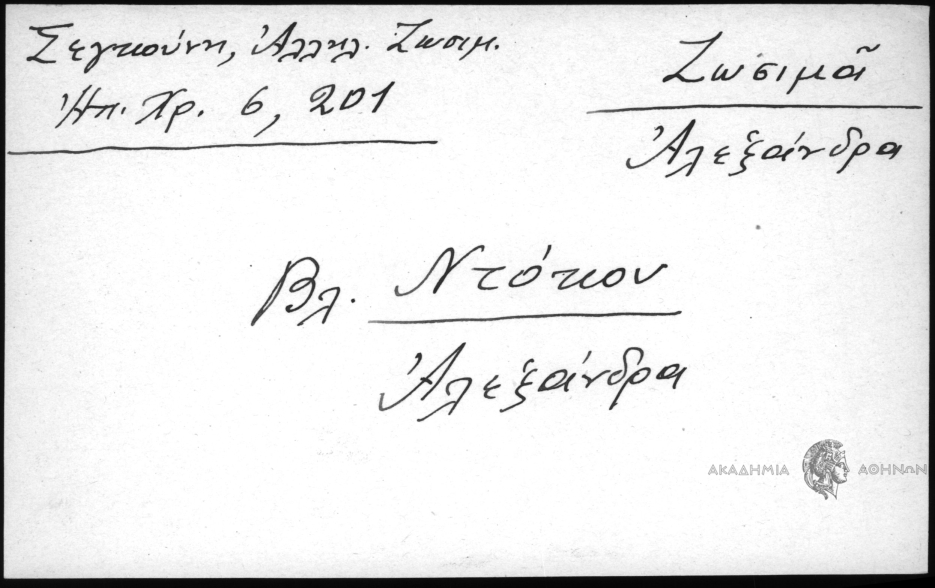 Σεγκούνη, Ἀλληλ. Ζωσιμ.
Ἠπ. Χρ. 6, 201
Ζωσιμᾶ
Ἀλεξάνδρα
Βλ. Ντόκου
Ἀλεξάνδρα
ΑΚΑΔΗΜΙΑ ΑΘΗΝΩΝ